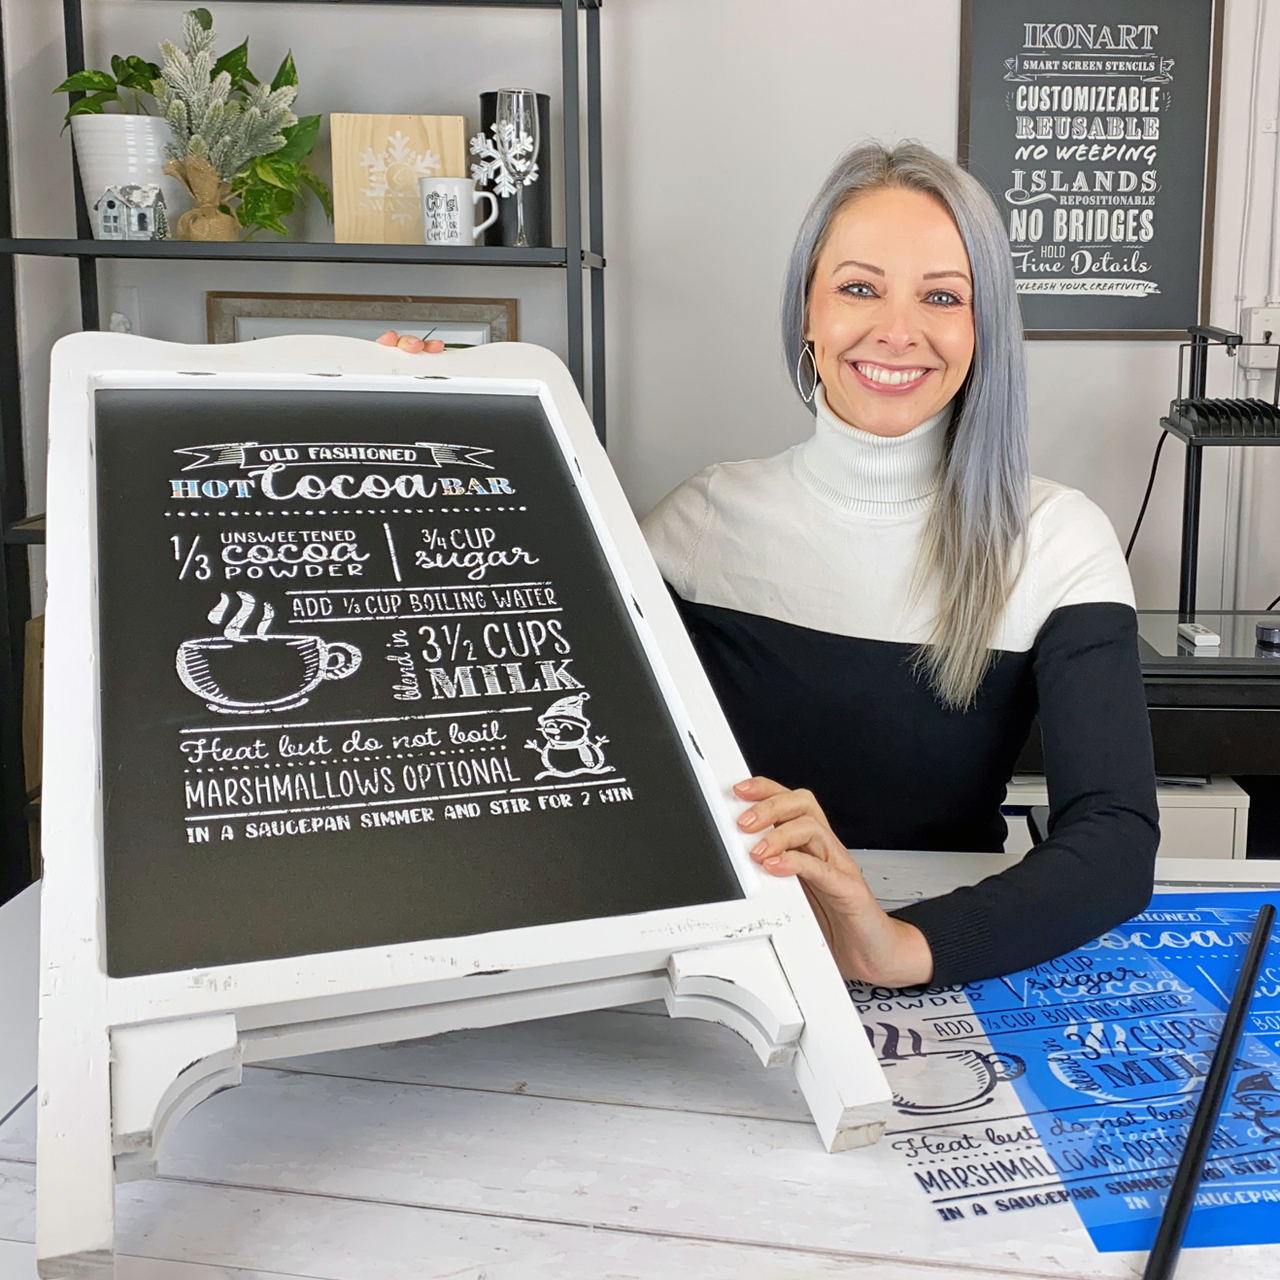 IKONART
SMART SCREEN STENCILS
CUSTOMIZEABLE
REUSABLE
NO WEEDING
ISLANDS
REPOSITIONABLE
NO BRIDGES
HOLD
Fine Details
UNLEASH YOUR CREATIVITY
OLD FASHIONED
HOT Cocoa BAR
1/3 UNSWEETENED cocoa POWDER
3/4 CUP sugar
ADD 1/3 CUP BOILING WATER
blend in 3 1/2 CUPS MILK
Heat but do not boil
MARSHMALLOWS OPTIONAL
IN A SAUCEPAN SIMMER AND STIR FOR 2 MIN
cocoa
3/4 CUP
sugar
POWDER
ADD 1/3 CUP BOILING WATER
3 1/2 CUPS
MILK
Heat but do not boil
MARSHMALLOWS OPTIONAL
IN A SAUCEPAN SIMMER AND STIR
IN A SAUCEPAN